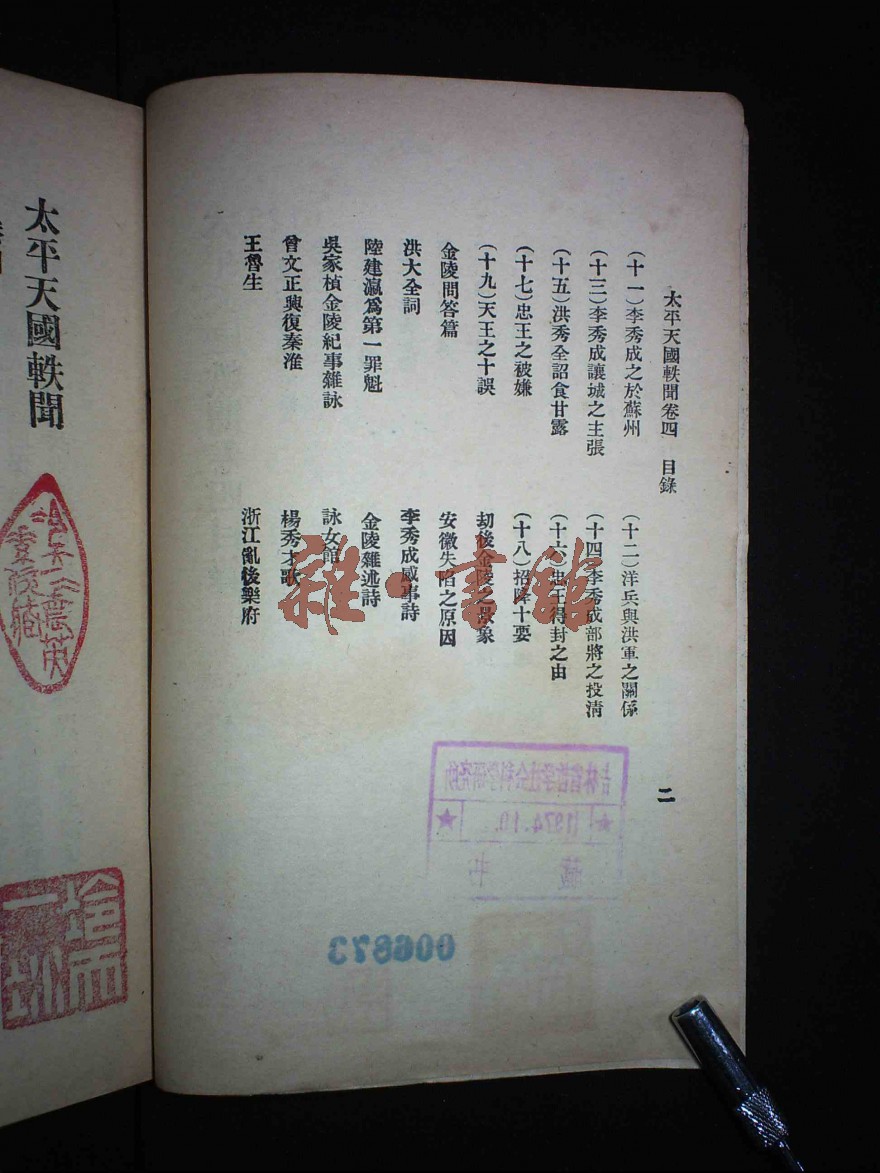 太平天國軼聞卷四 目錄
二
(十一)李秀成之於蘇州
(十二)洋兵與洪軍之關係
(十三)李秀成讓城之主張
(十四)李秀成部將之投清
(十五)洪秀全詔食甘露
(十六)忠王得封之由
(十七)忠王之被嫌
(十八)招降十要
(十九)天王之十誤
劫後金陵之景象
金陵問答篇
安徽失陷之原因
洪大全詞
李秀成感事詩
陸建瀛爲第一罪魁
金陵雜述詩
吳家楨金陵紀事雜詠
詠女館
曾文正興復秦淮
楊秀才歌
王魯生
浙江亂後樂府
雜·書館
吉林省哲学社会科学研究所
★ 1974.10. ★
藏 书
006673
太平天國軼聞